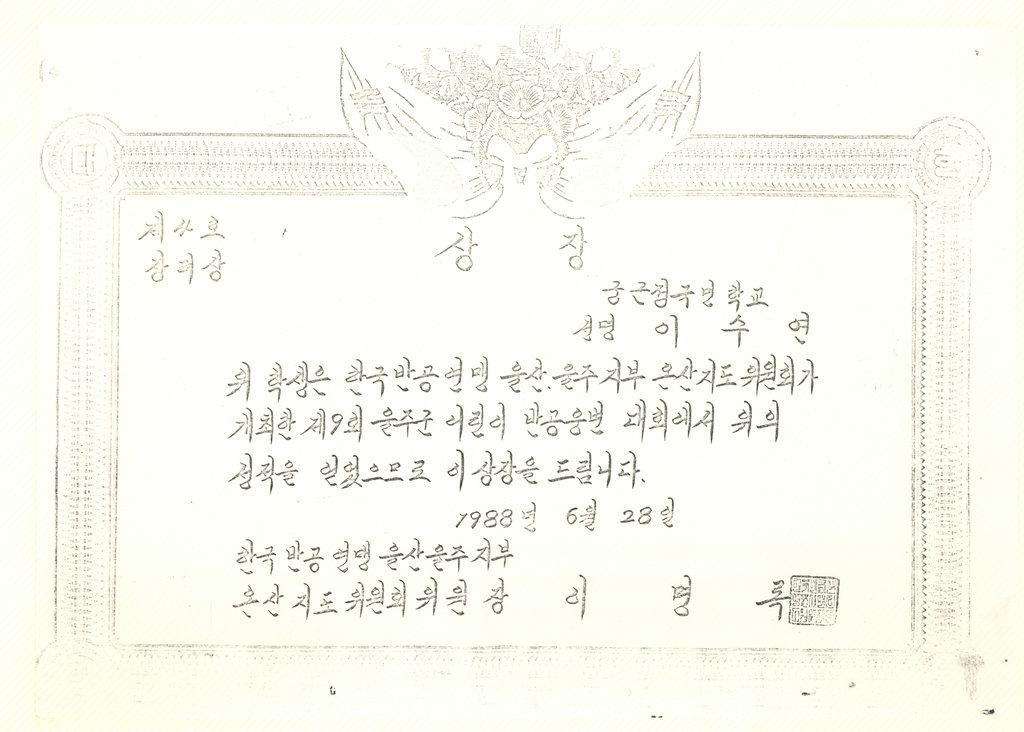 대
제 4 호
장려상
상 장
궁근정국민학교
성명 이 수 연
위 학생은 한국반공연맹 울산.울주지부 온산지도위원회가
개최한 제9회 울주군 어린이 반공웅변 대회에서 위의
성적을 얻었으므로 이상장을 드립니다.
1988년 6월 28일
한국 반공 연맹 울산울주지부
온산 지도 위원회 위원 장 이 명 록